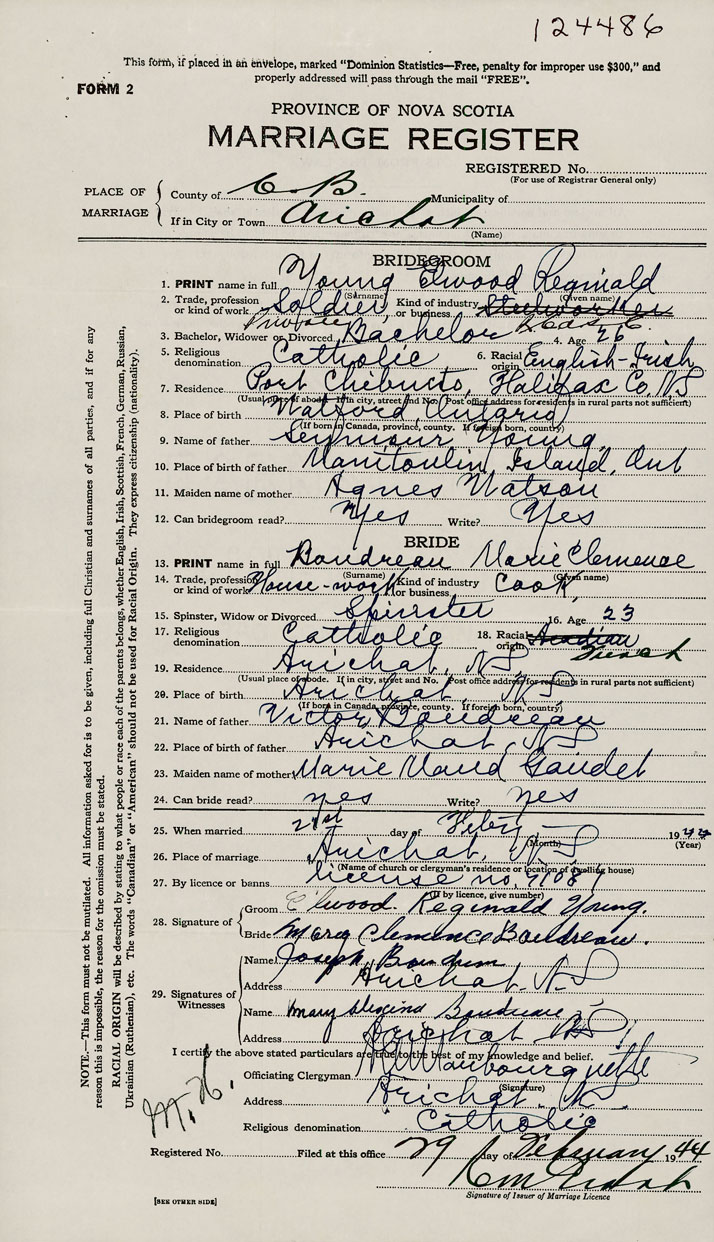 124486
This form, if placed in an envelope, marked "Dominion Statistics—Free, penalty for improper use $300," and
properly addressed will pass through the mail "FREE".
FORM 2
PROVINCE OF NOVA SCOTIA
MARRIAGE REGISTER
REGISTERED No.
(For use of Registrar General only)
PLACE OF MARRIAGE
County of C. B. Municipality of
If in City or Town Arichat
(Name)
BRIDEGROOM
1. PRINT name in full Young Elwood Reginald
(Surname) (Given name)
2. Trade, profession or kind of work Soldier Kind of industry or business Steelworker
Private
3. Bachelor, Widower or Divorced Bachelor 4. Age 26
5. Religious denomination Catholic 6. Racial origin English-Irish
7. Residence Port Chebucto, Halifax Co, N S
(Usual place of abode. If in city, street and No. Post office address for residents in rural parts not sufficient)
8. Place of birth Watford, Ontario
(If born in Canada, province, county. If foreign born, country)
9. Name of father Seymour Young
10. Place of birth of father Manitoulin Island, Ont
11. Maiden name of mother Agnes Watson
12. Can bridegroom read? Yes Write? Yes
BRIDE
13. PRINT name in full Boudreau Marie Clemence
(Surname) (Given name)
14. Trade, profession or kind of work House-work Kind of industry or business Cook
15. Spinster, Widow or Divorced Spinster 16. Age 23
17. Religious denomination Catholic 18. Racial origin Acadian
French
19. Residence Arichat, N S
(Usual place of abode. If in city, street and No. Post office address for residents in rural parts not sufficient)
20. Place of birth Arichat, N S
(If born in Canada, province, county. If foreign born, country)
21. Name of father Victor Boudreau
22. Place of birth of father Arichat, N S
23. Maiden name of mother Marie Maud Gaudet
24. Can bride read? yes Write? yes
25. When married 21st day of Feby 1944
(Month) (Year)
26. Place of marriage Arichat, N S
(Name of church or clergyman's residence or location of dwelling house)
27. By licence or banns license no.
(If by licence, give number)
28. Signature of
Groom Elwood Reginald Young.
Bride Mary Clemence Boudreau.
29. Signatures of Witnesses
Name Joseph Boudreau
Address Arichat. N.S
Name Mary Boudreau
Address Arichat N S
I certify the above stated particulars are true to the best of my knowledge and belief.
Officiating Clergyman
(Signature)
Address Arichat. N.
Religious denomination Catholic
Registered No. Filed at this office 29 day of February 1944
Signature of Issuer of Marriage Licence
[SEE OTHER SIDE]
NOTE.—This form must not be mutilated. All information asked for is to be given, including full Christian and surnames of all parties, and if for any
reason this is impossible, the reason for the omission must be stated.
RACIAL ORIGIN will be described by stating to what people or race each of the parents belongs, whether English, Irish, Scottish, French, German, Russian,
Ukrainian (Ruthenian), etc. The words "Canadian" or "American" should not be used for Racial Origin. They express citizenship (nationality).
M. H.